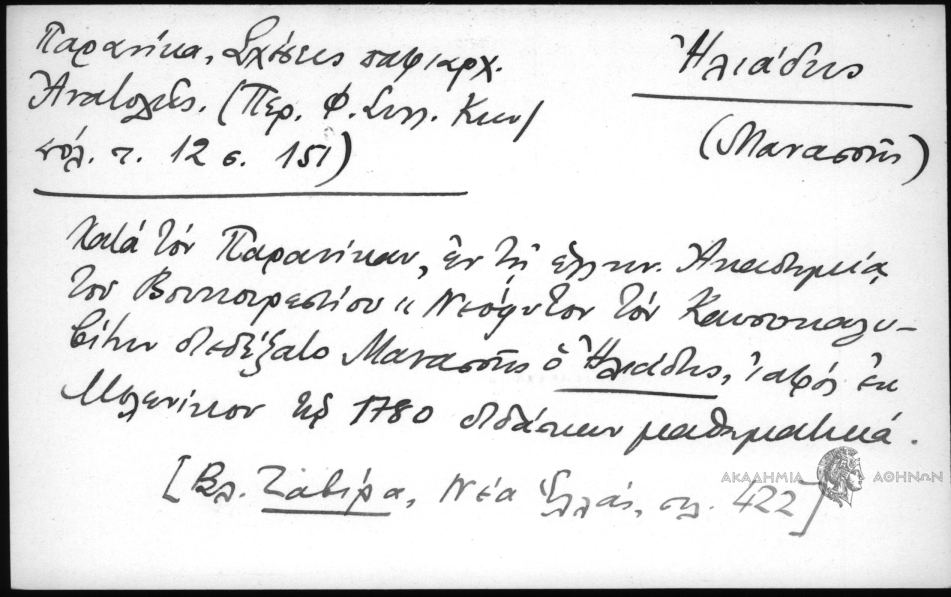 Παρανίκα, Σχέσεις πατριαρχ.
Ἀνατολῆς. (Περ. Φ. Συλ. Κων/
πόλ. τ. 12 σ. 151)
Ἠλιάδης
(Μανασσῆς)
Κατά τόν Παρανίκαν, ἐν τῇ ἑλλην. Ἀκαδημίᾳ
του Βουκουρεστίου "Νεόφυτον τόν Καυσοκαλυ-
βίτην διεδέξατο Μανασσῆς ὁ Ἠλιάδης, ἰατρός ἐκ
Μελενίκου τῷ 1780 διδάσκων μαθηματικά.
[Βλ. Ζαβίρα, Νέα Ἑλλάς, σελ. 422]
ΑΚΑΔΗΜΙΑ ΑΘΗΝΩΝ